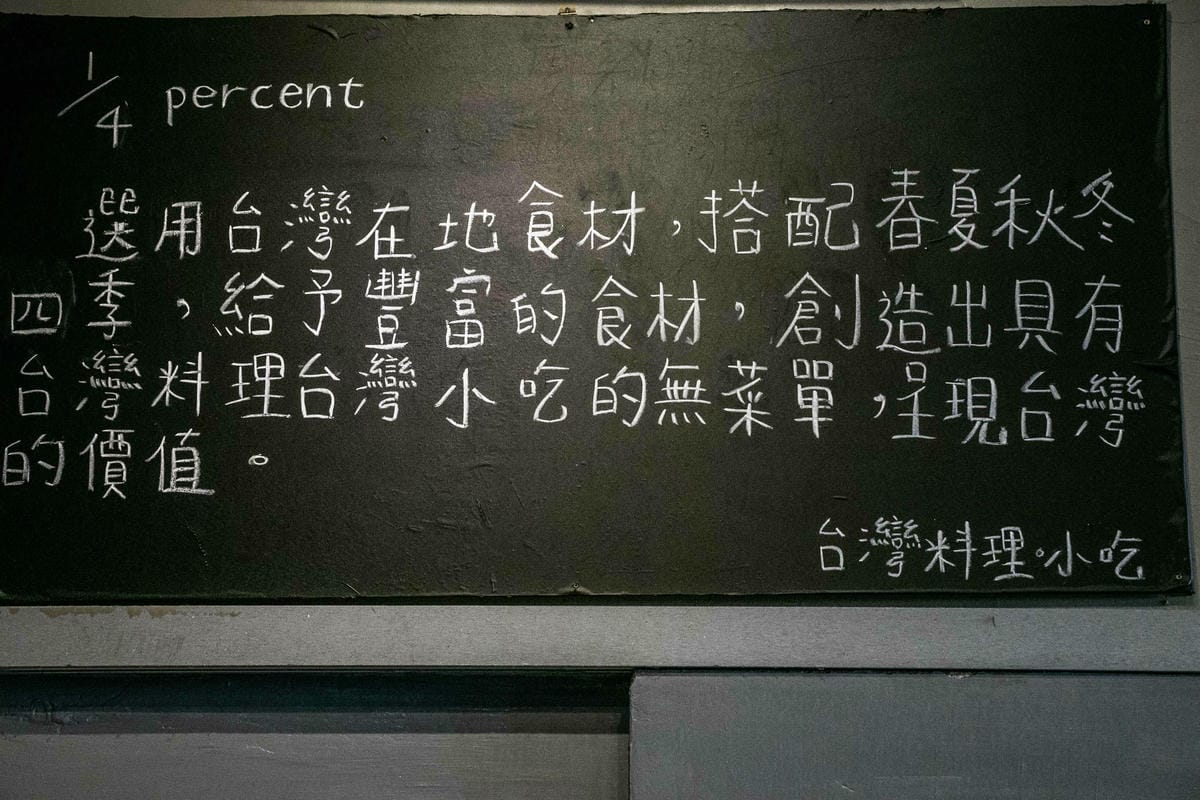 1/4 percent
選用台灣在地食材，搭配春夏秋冬
四季，給予豐富的食材，創造出具有
台灣料理台灣小吃的無菜單，呈現台灣
的價值。
台灣料理。小吃